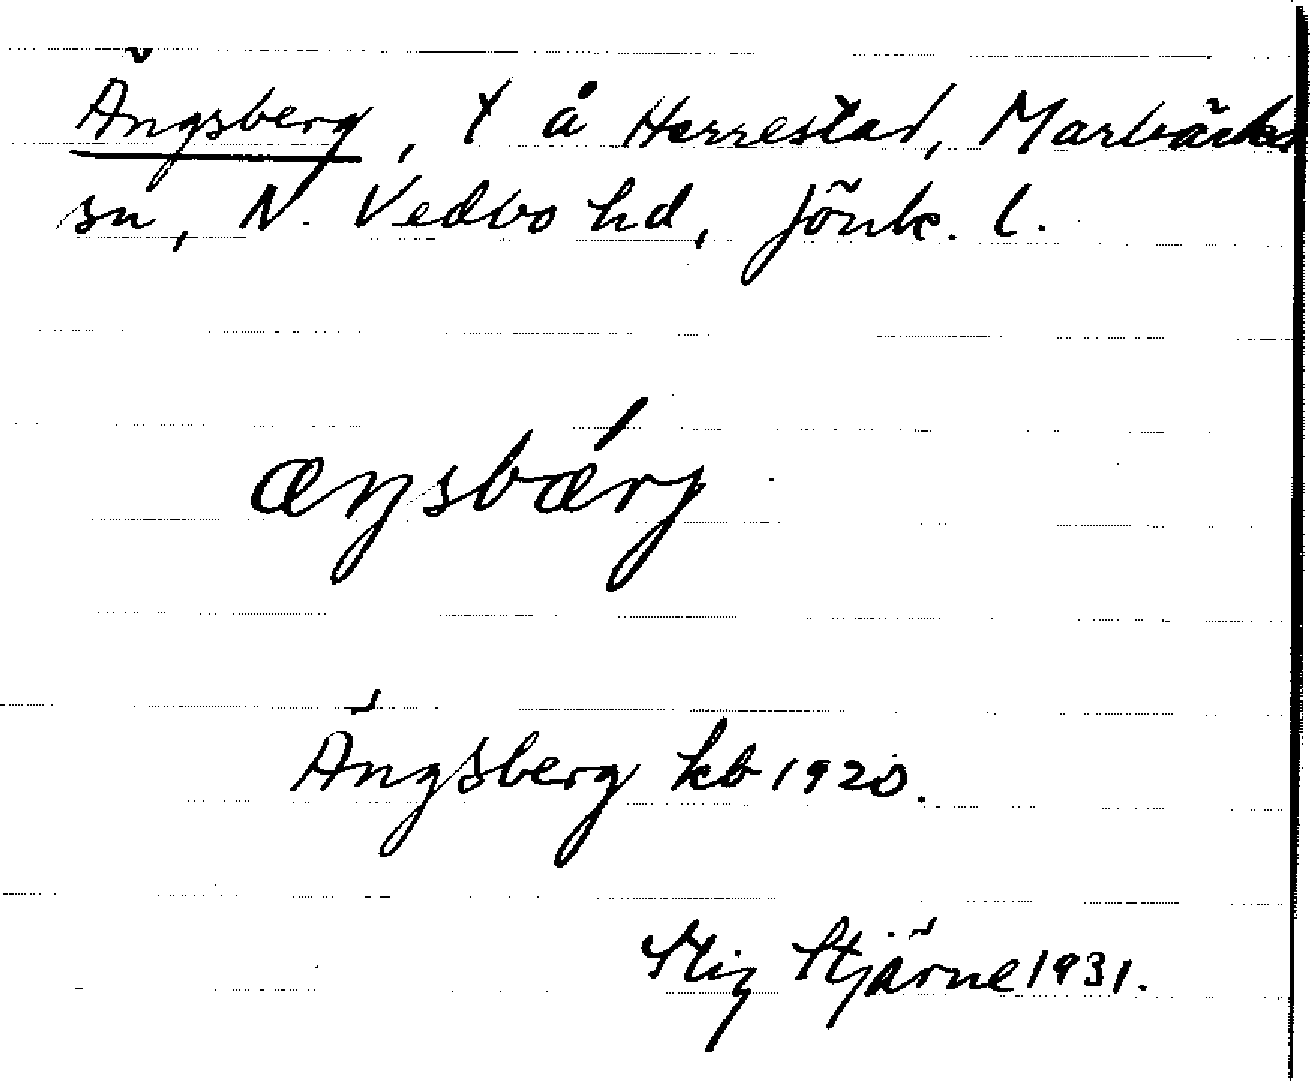 Ängsberg, t å Herrestad, Marbäcks
sn, N. Vedbo hd, Jönk. l.
æŋsbǽrj
Ängsberg kb 1920.
Stig Stjärne 1931.